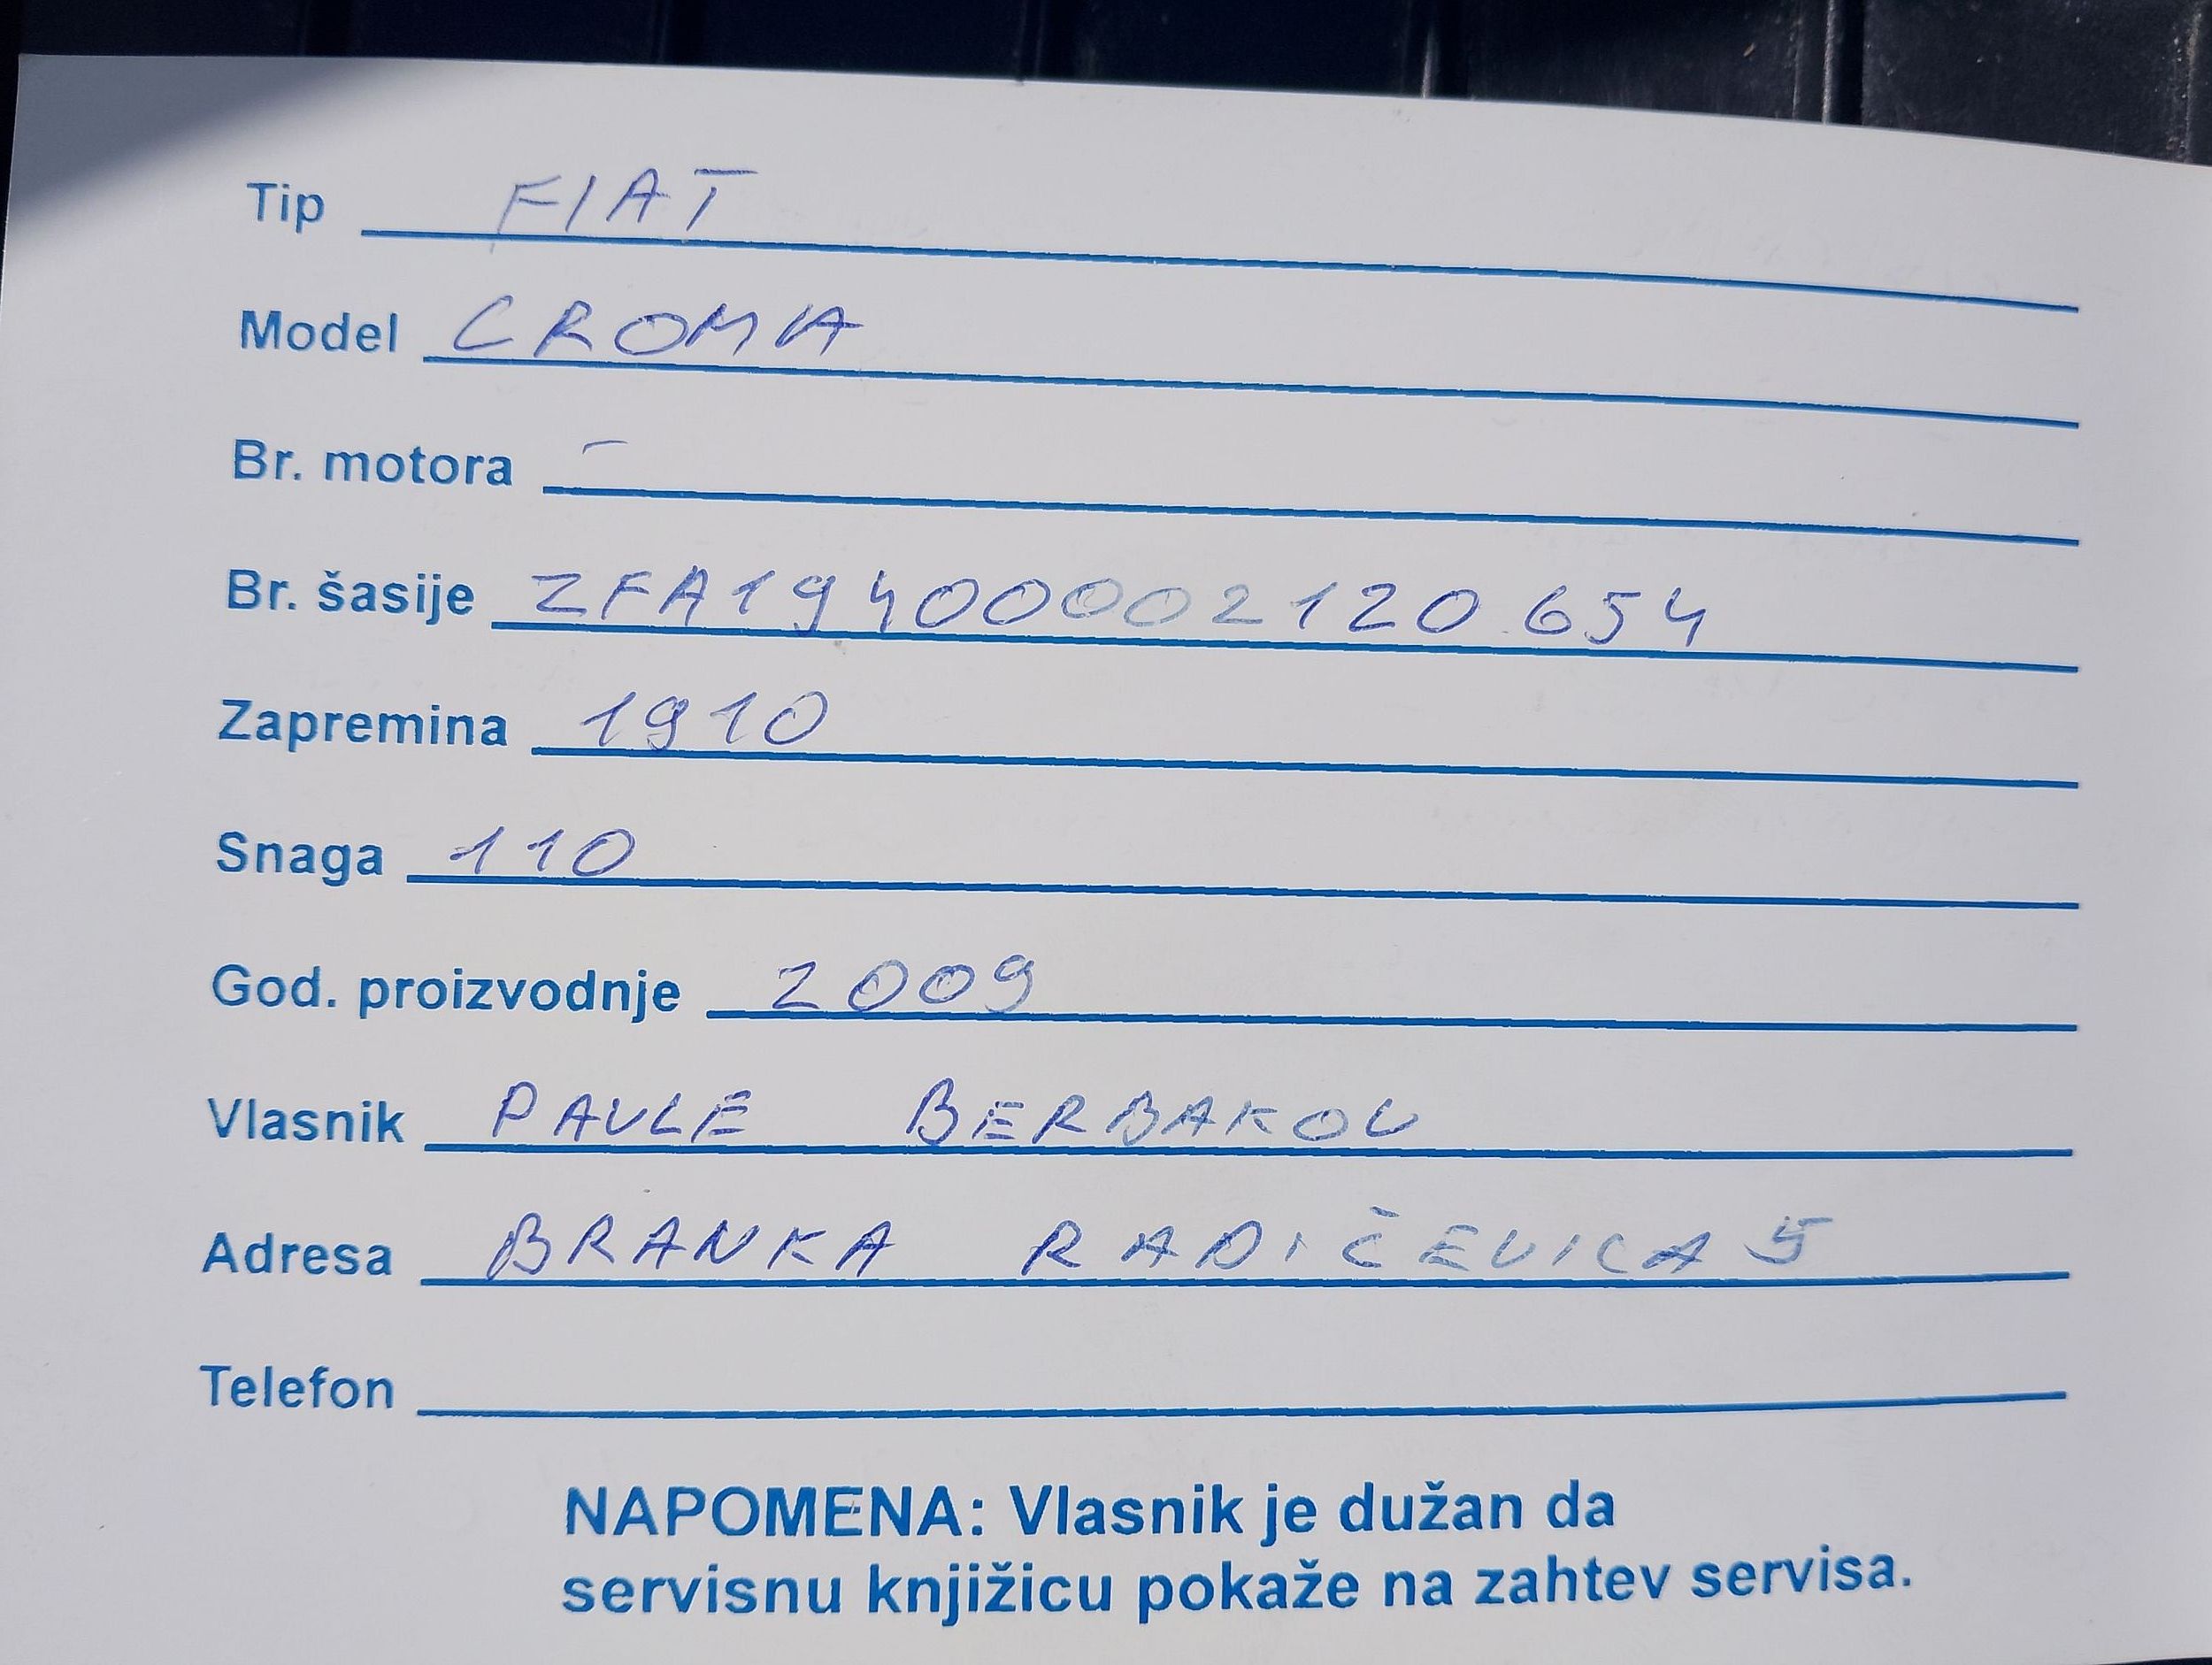 Tip FIAT
Model CROMA
Br. motora -
Br. šasije ZFA19400002120654
Zapremina 1910
Snaga 110
God. proizvodnje 2009
Vlasnik PAVLE BERBAKOV
Adresa BRANKA RADIČEVICA 5
Telefon
NAPOMENA: Vlasnik je dužan da
servisnu knjižicu pokaže na zahtev servisa.